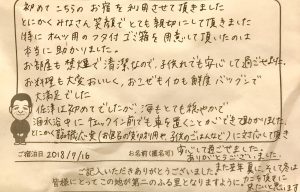 初めてこちらのお宿を利用させて頂きました
とにかくみなさん笑顔でとても親切にして頂きました
特にオムツ用のフタ付ゴミ箱を用意して頂いたのは
本当に助かりました。
お部屋も禁煙で清潔なので、子供れでも安心して過ごせました
お料理も大変おいしく、おこぜもイカも鮮度バツグンで
大満足でした
佐津は初めてでしたが、海もとても穏やかで
海水浴中にチェックイン前でも車を置くことができて助かりました。
とにかく臨機応変(お部屋の 取り知り用や子供のごはんなど)に対応して頂き
安心して過ごせました。
ありがとうございました。
ご宿泊日 2018/7/16
お名前(匿名可)
また
来たいと思います
ご記入いただきありがとうございました
皆様にとってこの地が第二のふる里となりますように